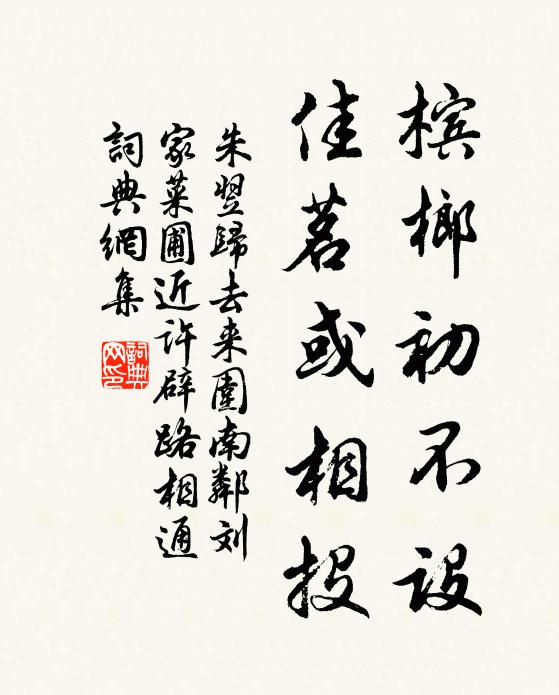 槟榔初不设
佳茗或相投
朱翌歸去来園南鄰刘
家菜圃近许辟路相通
詞典網集
詞典网印